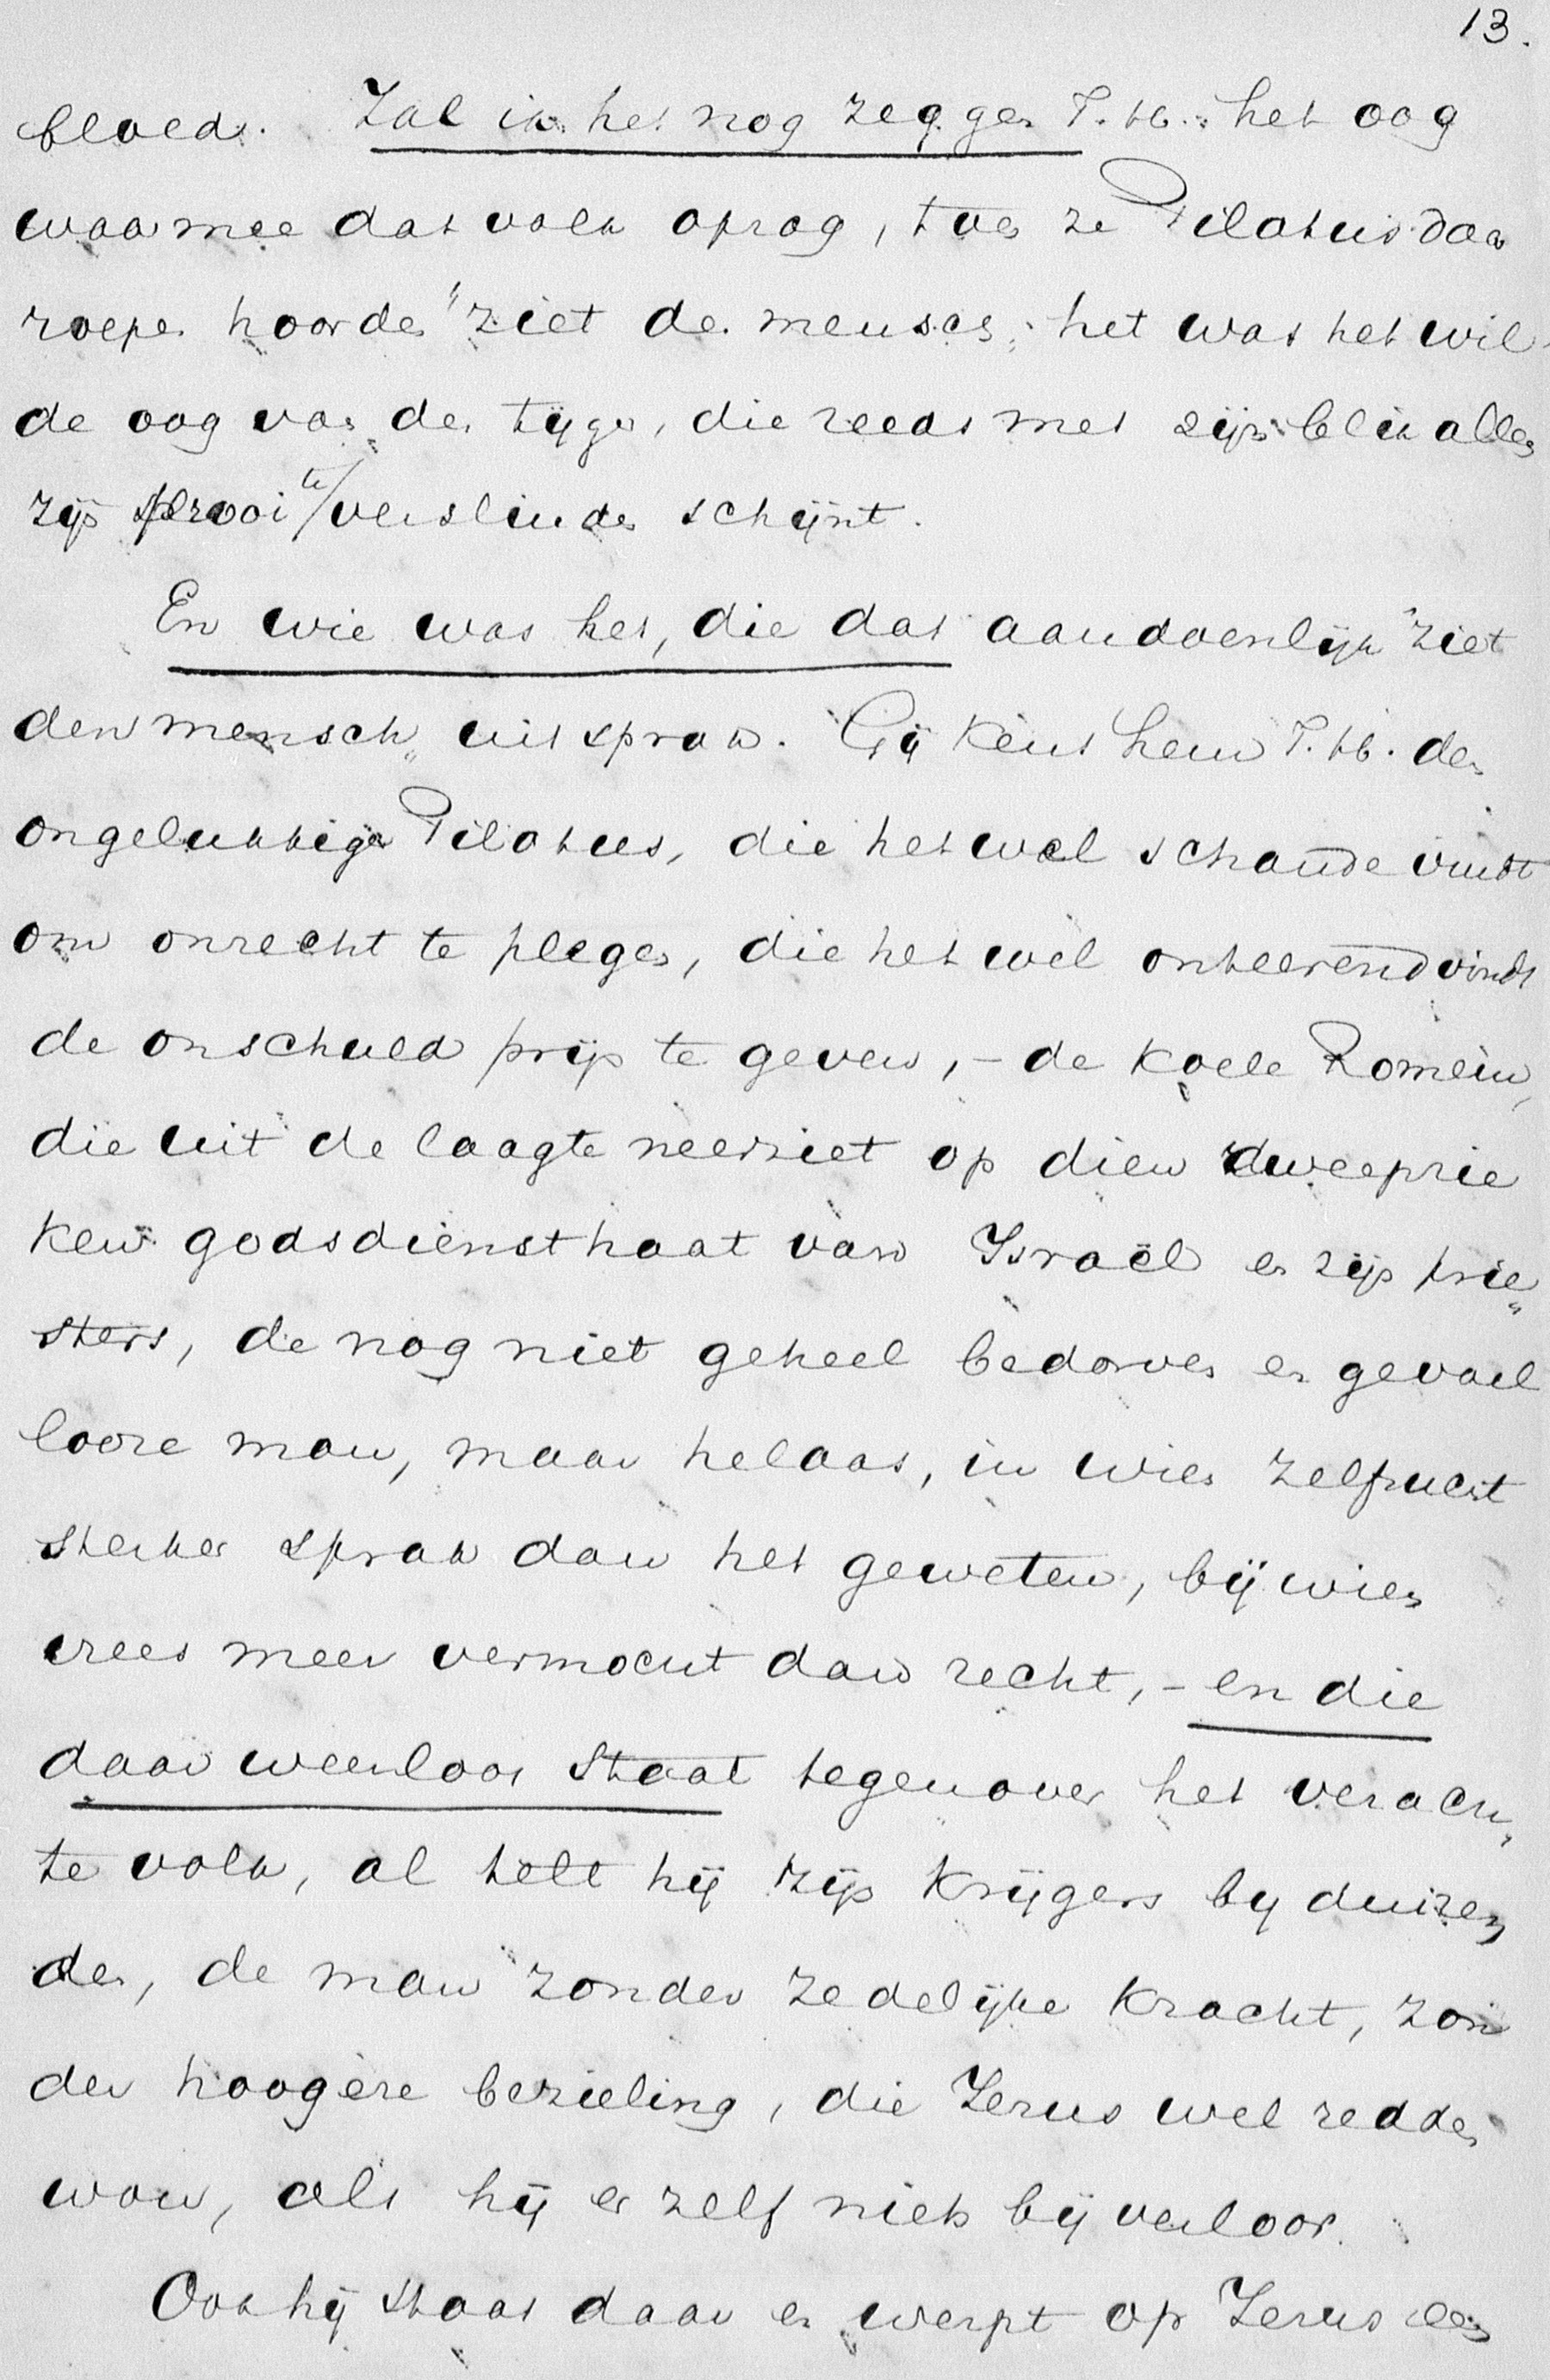 13.
bloed. Zal ik het nog zeggen T. H. het oog
waarmee dat volk opzag, toen ze Pilatus daar
roepen hoorden "ziet de mensch; het was het wil-
de oog van den tijger, die reeds met zijn blik alleen
zijn prooi te verslinden schijnt.
En wie was het, die dat aandoenlijk "ziet
den mensch" uitsprak. Gij kent hem T. H. den
ongelukkigen Pilatus, die het wel schande vindt
om onrecht te plegen, die het wel onteerend vindt
de onschuld prijs te geven, - de koele Romein,
die uit de laagte neerziet op dien dweepzie
ken godsdiensthaat van Israël en zijn prie„
sters, de nog niet geheel bedorven en gevoel
looze man, maar helaas, in wien zelfzucht
sterker sprak dan het geweten, bij wien
vrees meer vermocht dan recht, - en die
daar weerloos staat tegenover het verach„
te volk, al telt hij zijn krijgers by duizen
den, de man zonder zedelijke kracht, zon
der hoogere bezieling, die Jezus wel redden
wou, als hij er zelf niets bij verloor.
Ook hij staat daar en werpt op Jezus een